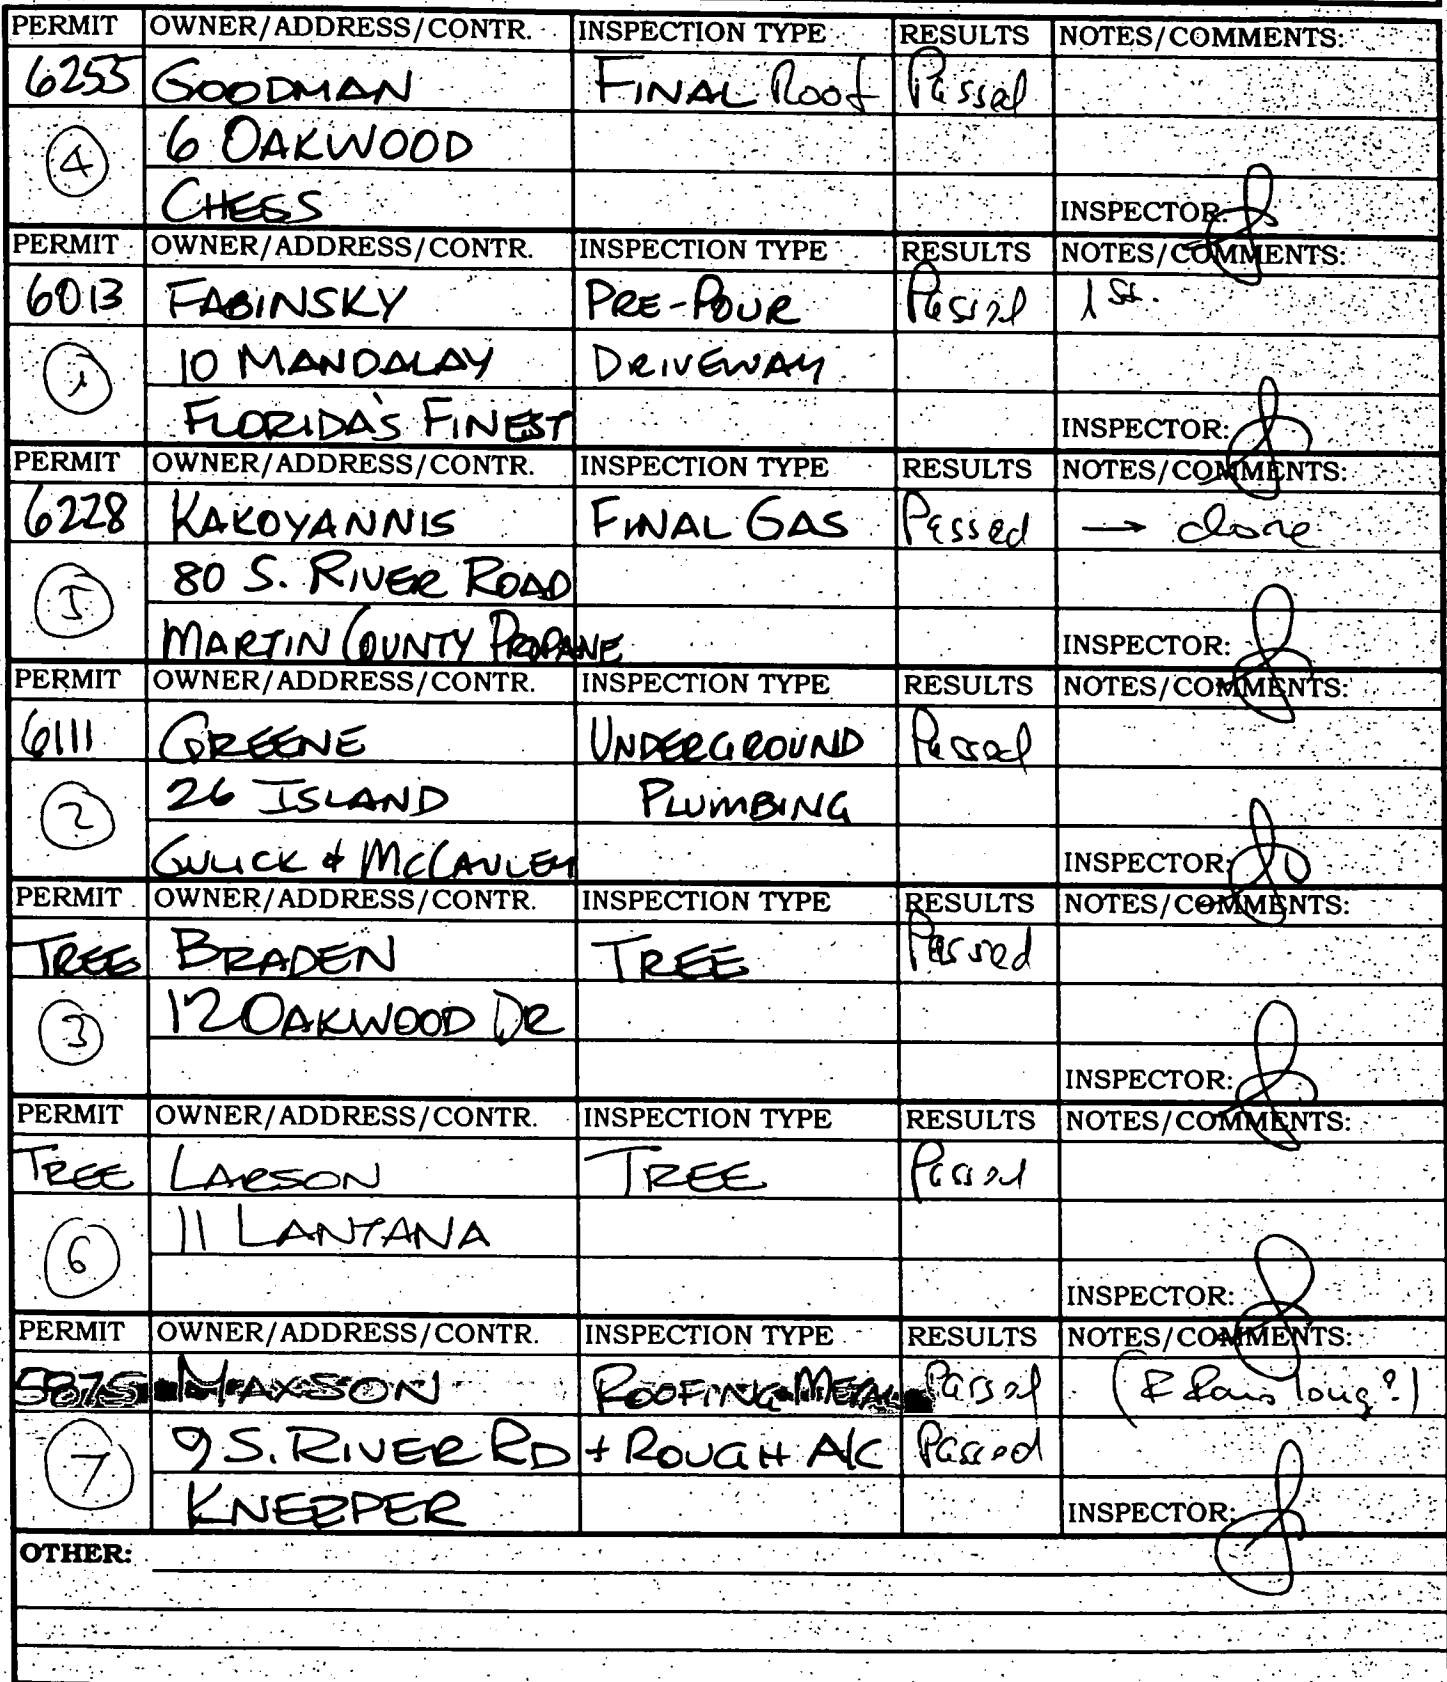 PERMIT OWNER/ADDRESS/CONTR. INSPECTION TYPE RESULTS NOTES/COMMENTS:
6255 GOODMAN FINAL ROOF Passed
4 6 OAKWOOD
CHESS INSPECTOR:
PERMIT OWNER/ADDRESS/CONTR. INSPECTION TYPE RESULTS NOTES/COMMENTS:
6013 FABINSKY PRE-POUR Passed 1 St.
1 10 MANDALAY DRIVEWAY
FLORIDA'S FINEST INSPECTOR:
PERMIT OWNER/ADDRESS/CONTR. INSPECTION TYPE RESULTS NOTES/COMMENTS:
6228 KAKOYANNIS FINAL GAS Passed → close
5 80 S. RIVER ROAD
MARTIN COUNTY PROPANE INSPECTOR:
PERMIT OWNER/ADDRESS/CONTR. INSPECTION TYPE RESULTS NOTES/COMMENTS:
6111 GREENE UNDERGROUND Passed
2 26 ISLAND PLUMBING
GULICK & MCCAULEY INSPECTOR:
PERMIT OWNER/ADDRESS/CONTR. INSPECTION TYPE RESULTS NOTES/COMMENTS:
TREE BRADEN TREE Passed
3 12 OAKWOOD DR
INSPECTOR:
PERMIT OWNER/ADDRESS/CONTR. INSPECTION TYPE RESULTS NOTES/COMMENTS:
TREE LARSON TREE Passed
6 11 LANTANA
INSPECTOR:
PERMIT OWNER/ADDRESS/CONTR. INSPECTION TYPE RESULTS NOTES/COMMENTS:
5875 MAXSON ROOFING-METAL Passed long?)
7 9 S. RIVER RD + ROUGH A/C Passed
KNEPPER INSPECTOR:
OTHER: